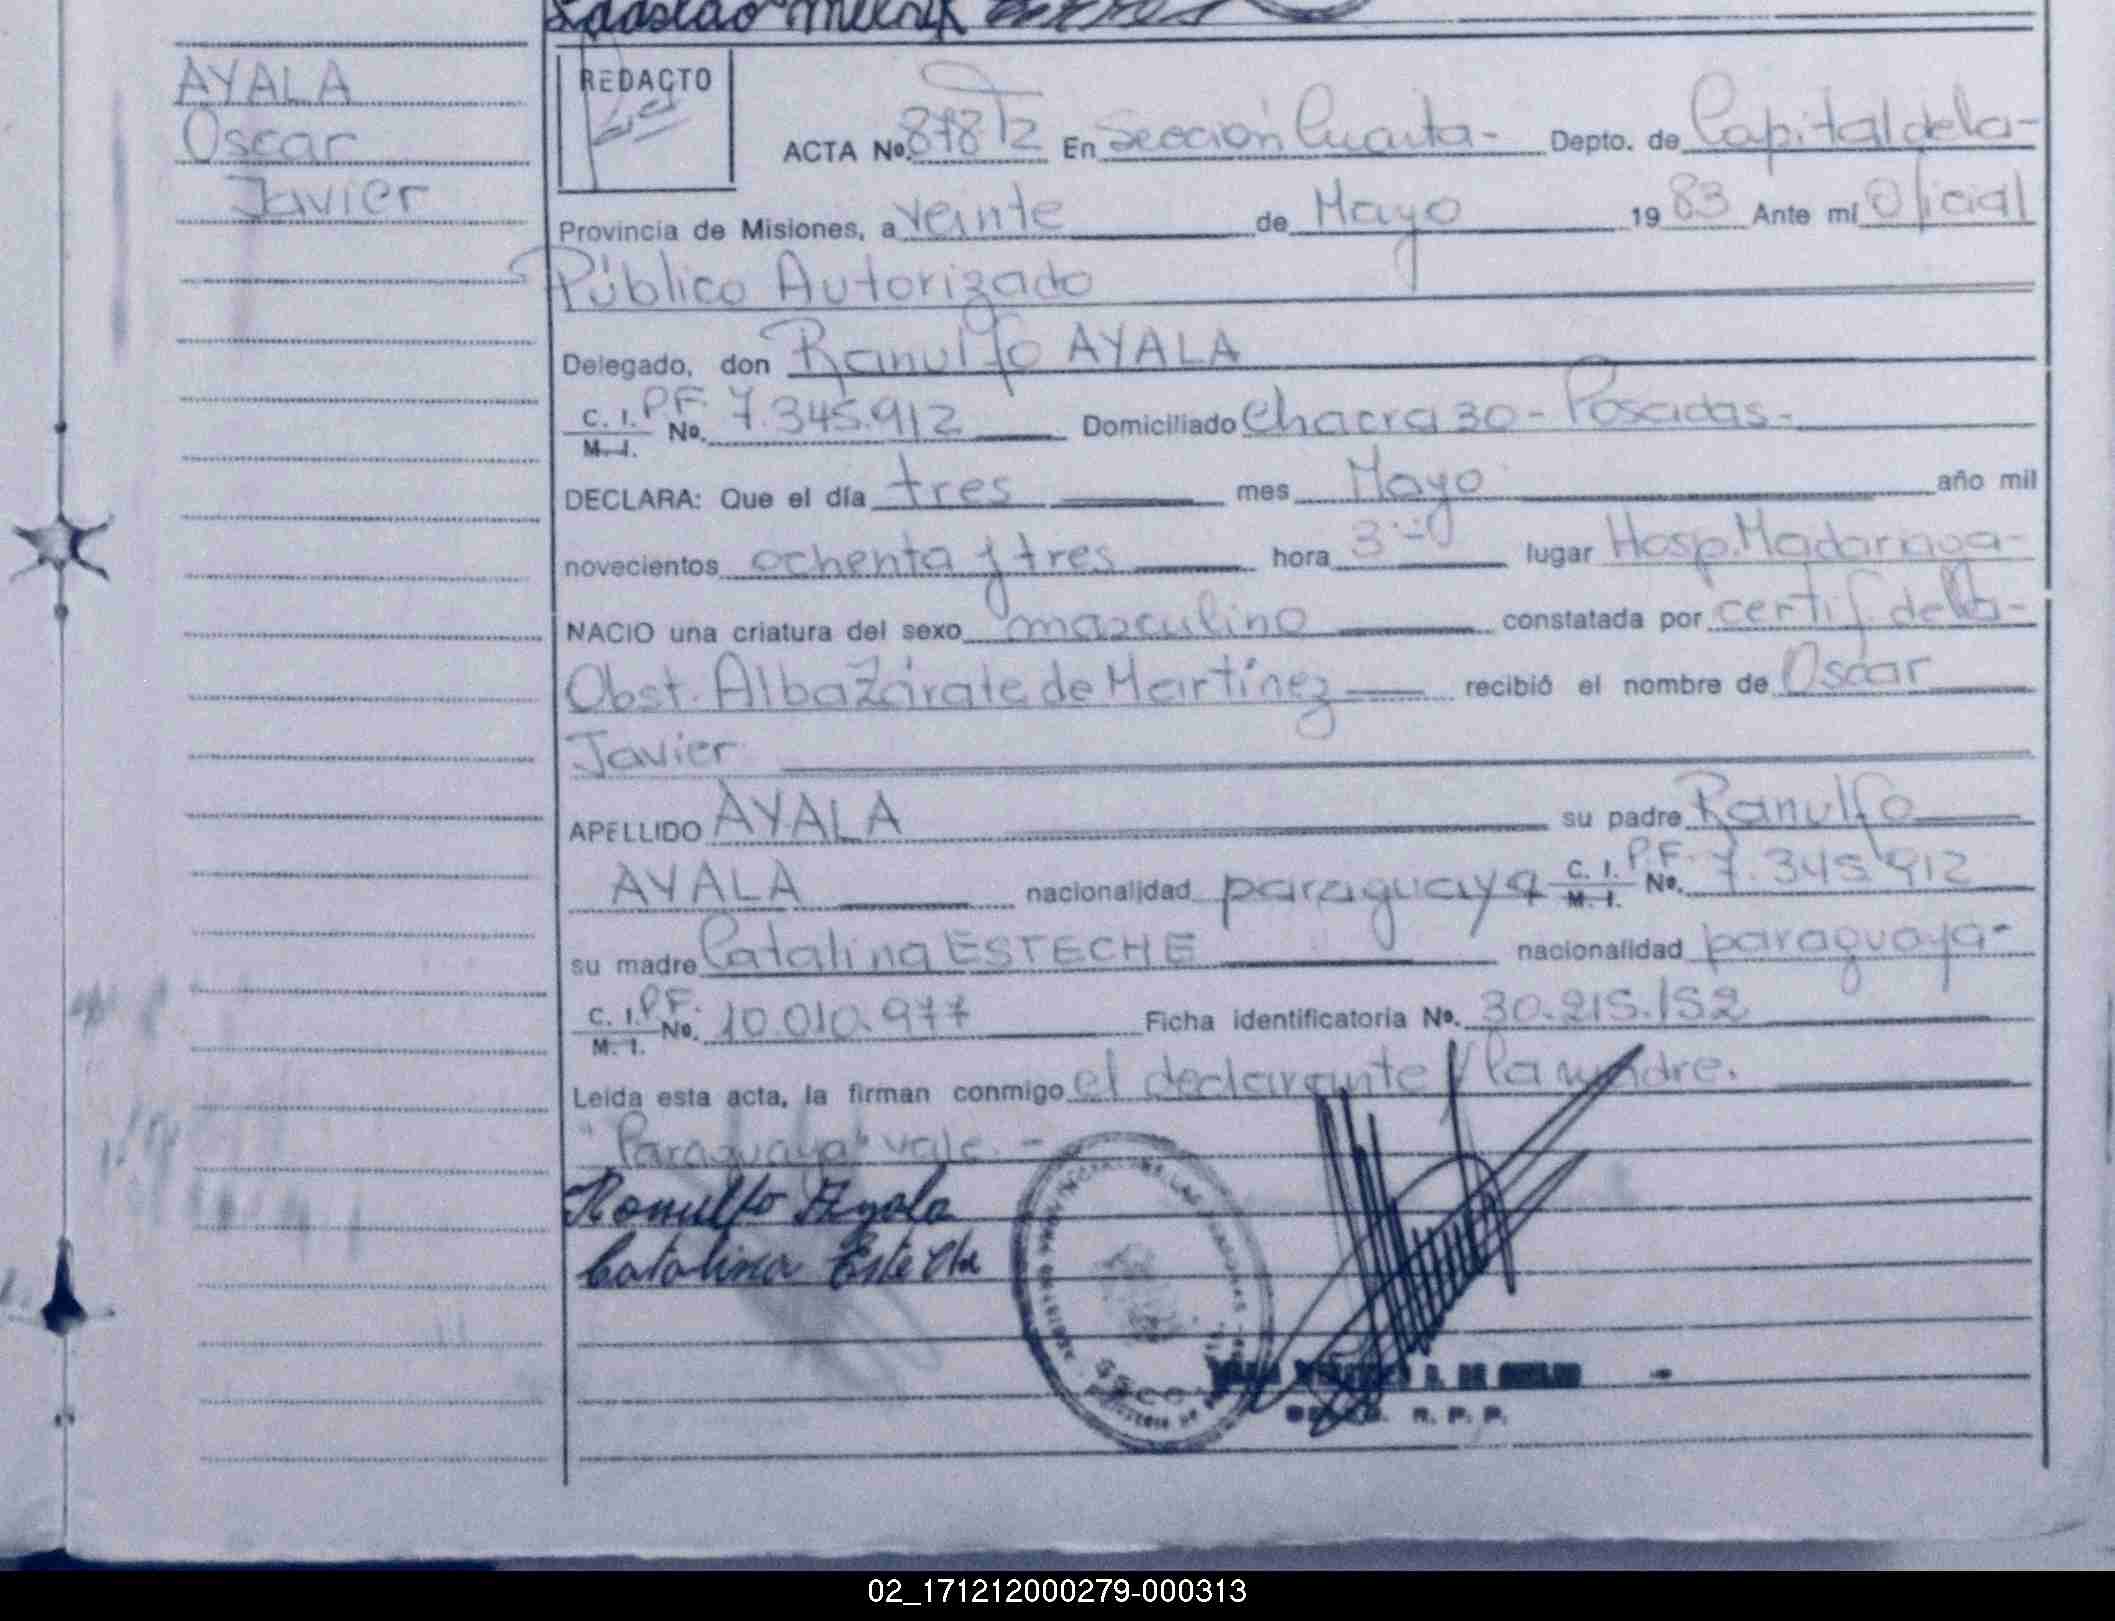 Ladislao Melnik
AYALA
Oscar
Javier
REDACTO
ACTA Nº. 878 T2 En Sección Cuarta- Depto. de Capital de la-
Provincia de Misiones, a veinte de Mayo 19 83 Ante mí Oficial
Público Autorizado
Delegado, don Ranulfo AYALA
C. I. P.F. M. I. Nº. 7.345.912 Domiciliado Chacra 30 - Posadas.-
DECLARA: Que el día tres mes Mayo año mil
novecientos ochenta y tres hora 3 lugar Hosp. Madariaga-
NACIO una criatura del sexo masculino constatada por certif. de la-
Obst. Alba Zárate de Martínez recibió el nombre de Oscar
Javier
APELLIDO AYALA su padre Ranulfo
AYALA nacionalidad paraguaya C. I. P.F. M. I. Nº. 7.345.912
su madre Catalina ESTECHE nacionalidad paraguaya-
C. I. P.F. M. I. Nº. 10.010.977 Ficha identificatoria Nº. 30.215.152
Leida esta acta, la firman conmigo el declarante y la madre.
"Paraguaya" vale. -
Ranulfo Ayala
Catalina Esteche
R. P. P.
02_171212000279-000313